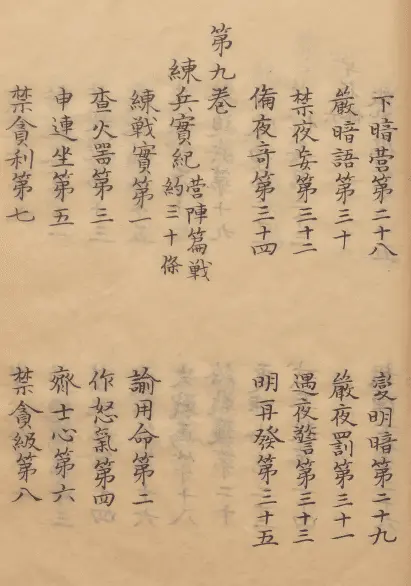 下暗營第二十八
變明暗第二十九
嚴暗語第三十
嚴夜罰第三十一
禁夜妄第三十二
遇夜警第三十三
備夜奇第三十四
明再發第三十五
第九卷
練兵實紀營陣篇戰約三十條
練戰實第一
諭用命第二
查火器第三
作怒氣第四
申連坐第五
齊士心第六
禁貪利第七
禁貪級第八